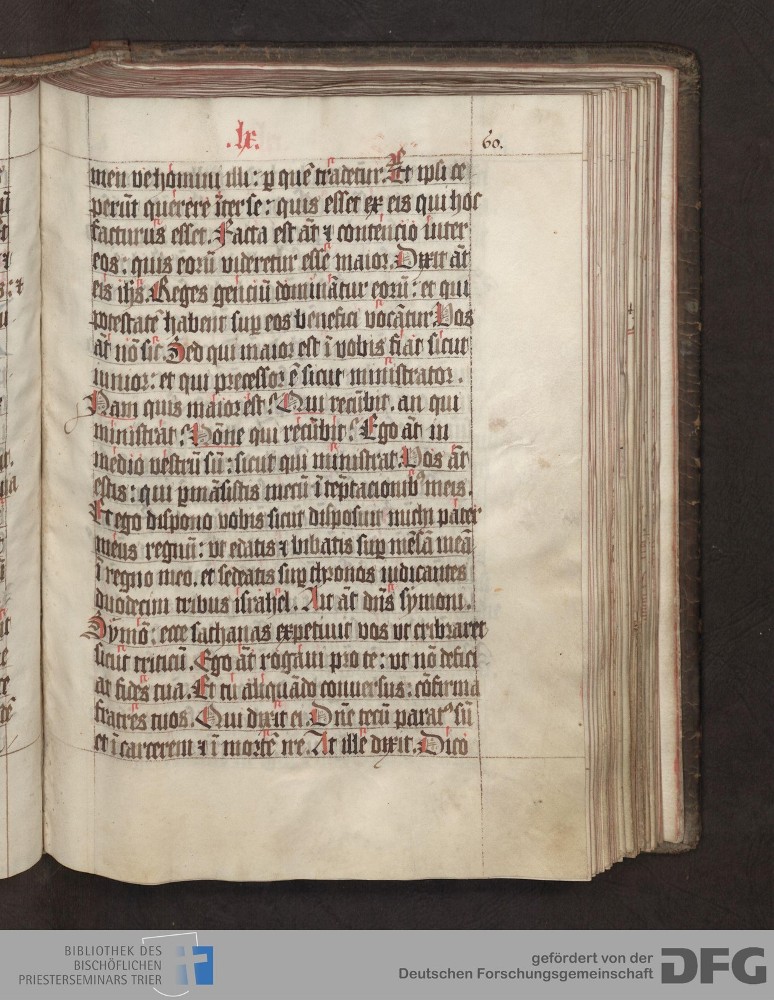 .lx.
60.
men ve homini illi : ꝑ quē tradetur. Et ipsi ce
perūt querere īter se : quis esset ex eis qui hoc
facturus esset. Facta est āt ⁊ contencio inter
eos : quis eorū videretur esse maior. Dixit āt
eis ihs̄. Reges genciū dominātur eorū : et qui
potestatē habent suꝑ eos benefici vocātur. Vos
āt nō sic. Sed qui maior est ī vobis fiat sicut
iunior : et qui precessor ē sicut ministrator.
Nam quis maior est? Qui recūbit. an qui
ministrat? Nōne qui recūbit? Ego āt in
medio vestrū sū : sicut qui ministrat. Vos āt
estis : qui ꝑmāsistis mecū ī tēptacionibꝰ meis.
Et ego dispono vobis sicut disposuit michi pater
meus regnū : vt edatis ⁊ bibatis suꝑ mēsā meā
ī regno meo. et sedeatis suꝑ thronos iudicantes
duodecim tribus israhel. Ait āt dn̄s symoni.
Symō : ecce sathanas expetiuit vos vt cribraret
sicut triticū. Ego āt rogaui pro te : vt nō defici
at fides tua. Et tu aliquādo conuersus : cōfirma
fratres tuos. Qui dixit ei. Dn̄e tecū paratꝰ sū
et ī carcerem ⁊ ī mortē ire. At ille dixit. Dico
BIBLIOTHEK DES
BISCHÖFLICHEN
PRIESTERSEMINARS TRIER
gefördert von der
Deutschen Forschungsgemeinschaft
DFG